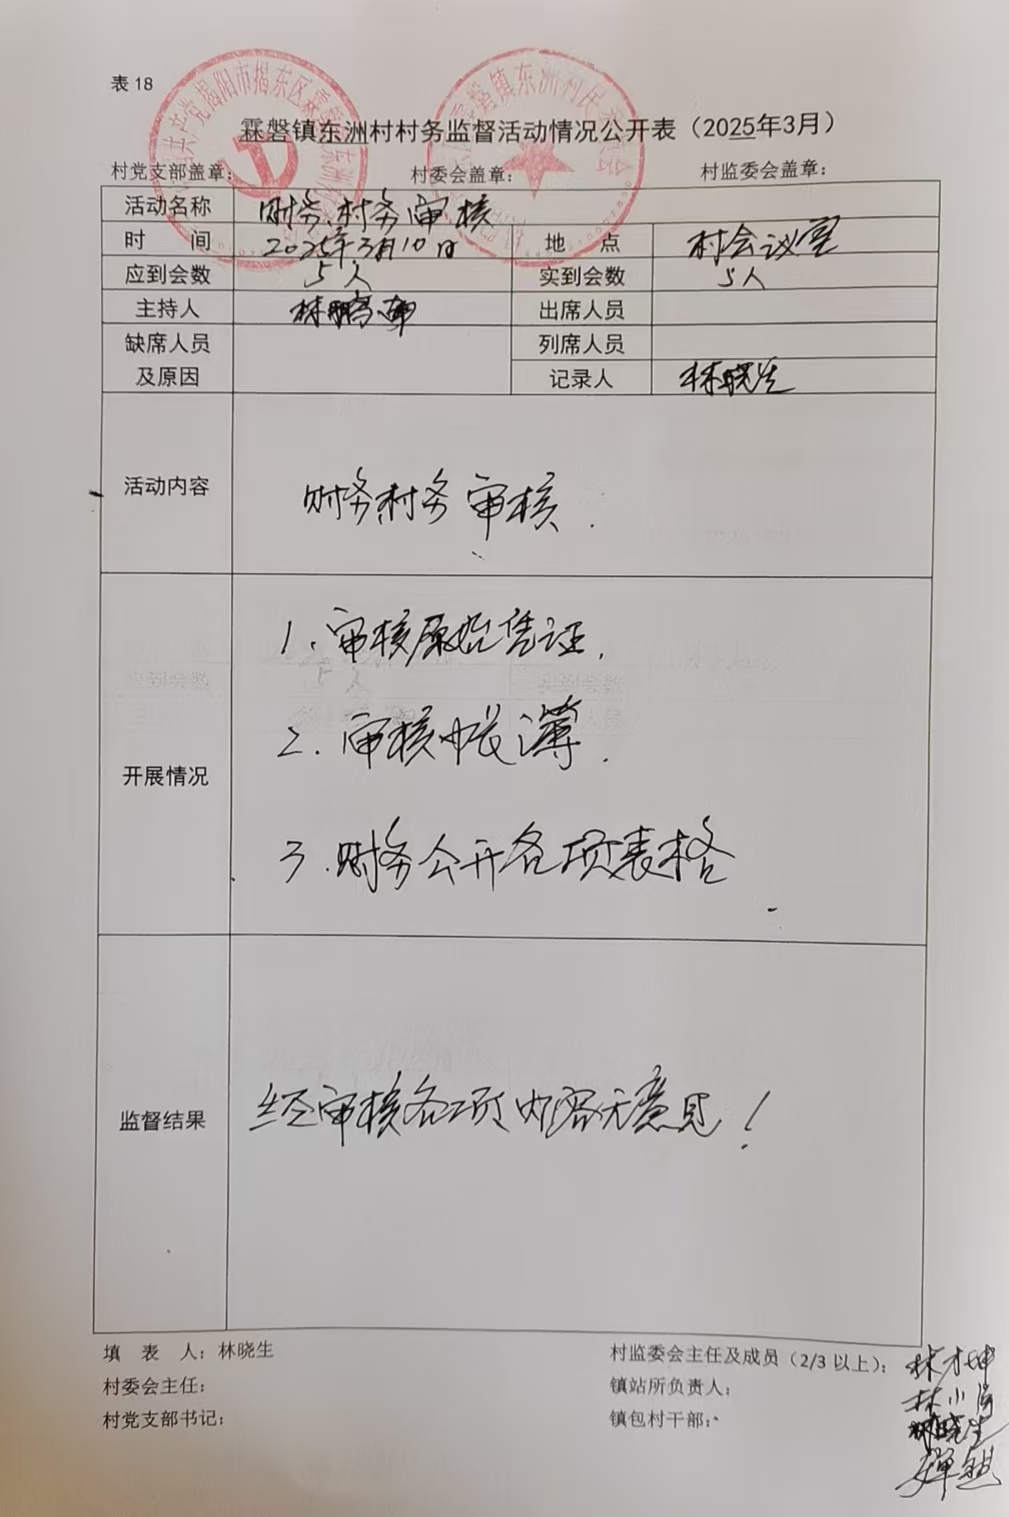 表 18
霖磐镇东洲村村务监督活动情况公开表（2025年3月）
村党支部盖章： 村委会盖章： 村监委会盖章：
活动名称 财务.村务审核
时 间 2025年3月10日 地 点 村会议室
应到会数 5人 实到会数 5人
主持人 出席人员
缺席人员及原因 列席人员
记录人 林晓生
活动内容 财务村务审核.
开展情况
1.审核原始凭证.
2.审核帐簿.
3.财务公开各项表格
监督结果 经审核各项内容无意见！
填 表 人：林晓生 村监委会主任及成员（2/3 以上）：
林小
林晓生
村委会主任： 镇站所负责人：
村党支部书记： 镇包村干部：